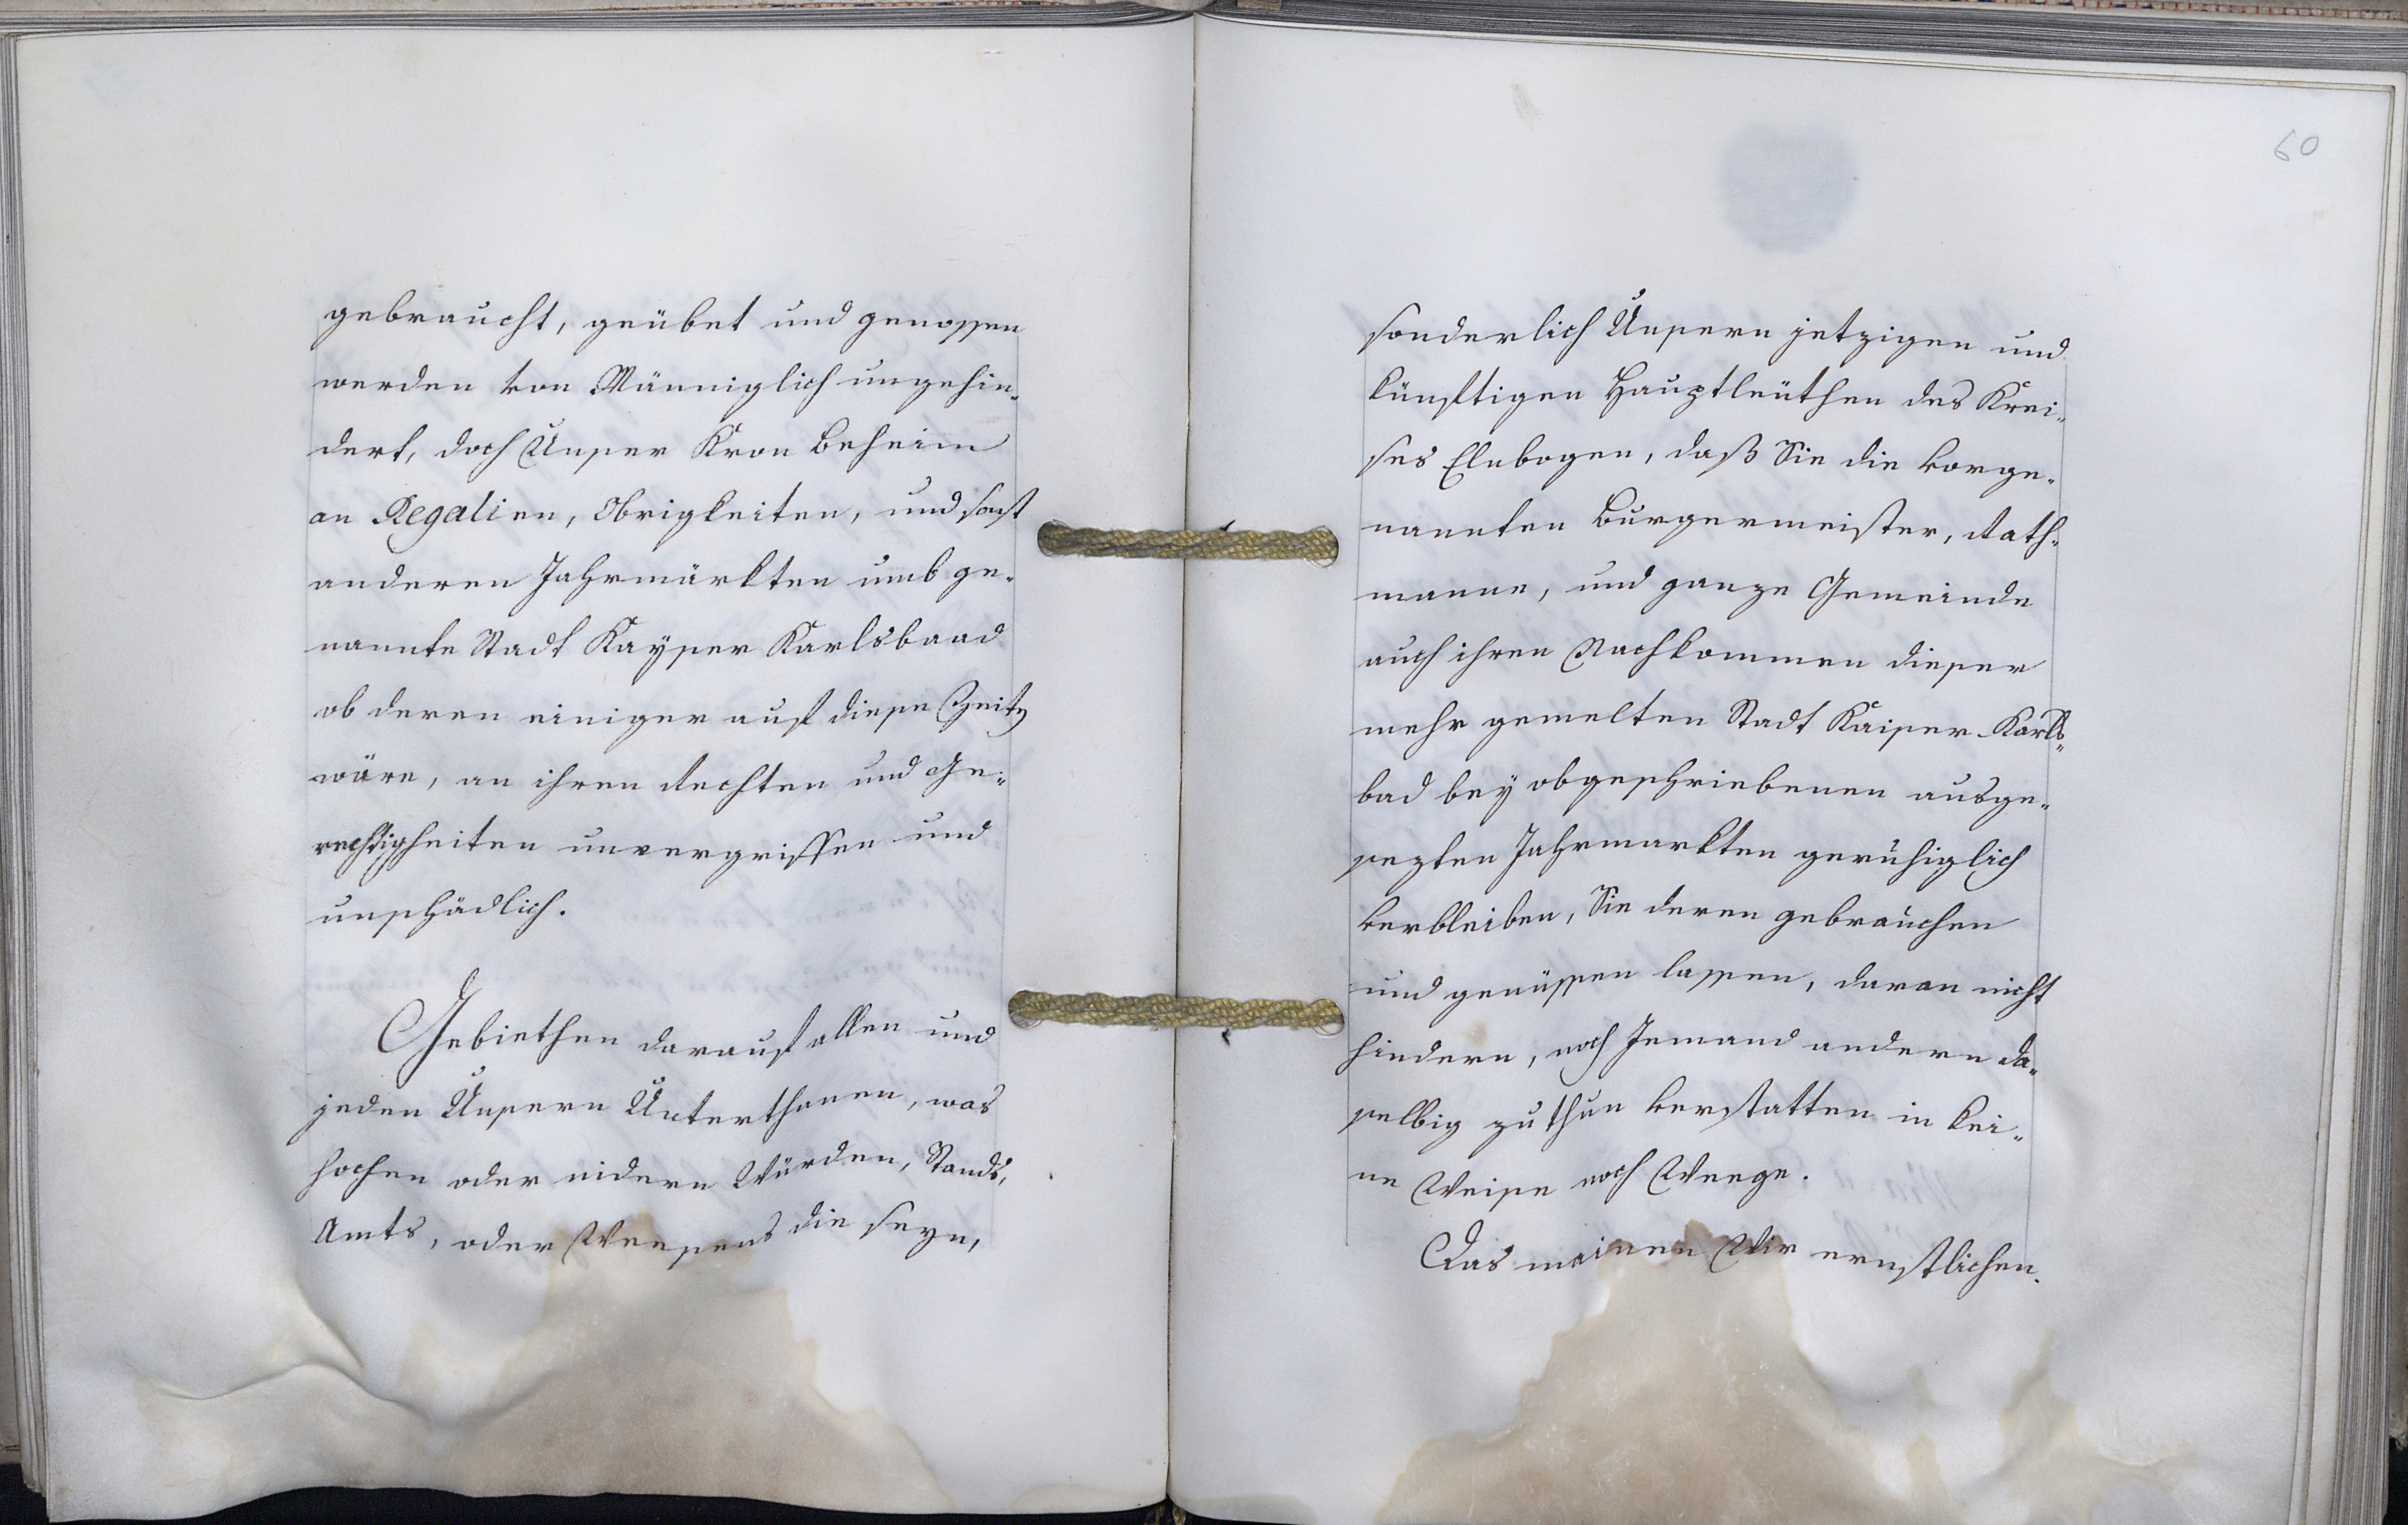 gebraucht, geübet und genossen
werden von Männiglich ungehin-
dert, doch Unser Kron Beheim
an Regalien, Obrigkeiten, und sonst
anderen Jahrmärkten umb ge-
nannte Stadt Kayser Karlsbaad
ob deren einiger auf diese Zeitz
wäre, an ihren Rechten und Ge-
rechtigkeiten unvergriffen und
unschädlich.
Gebiethen darauf allen und
jeden Unsern Unterthanen, was
hochen oder nidern Würden, Stands,
Amts, oder Weesens die seyn,
60
sonderlich Unsern jetzigen und
künftigen Hauptleüthen des Krei-
ses Elnbogen, daß Sie die vorge-
nannten Burgermeister, Rath-
manne, und ganze Gemeinde
auch ihren Nachkommen dieser
mehr gemelten Stadt Kaiser Karls-
bad bey obgeschriebenen ausge-
sezten Jahrmarkten geruhiglich
verbleiben, Sie deren gebrauchen
und genüssen lassen, daran nicht
hindern, noch Jemand andern da-
selbig zu thun verstatten in kei-
ne Weise noch Weege.
Das meinen Wir ernstlichen.